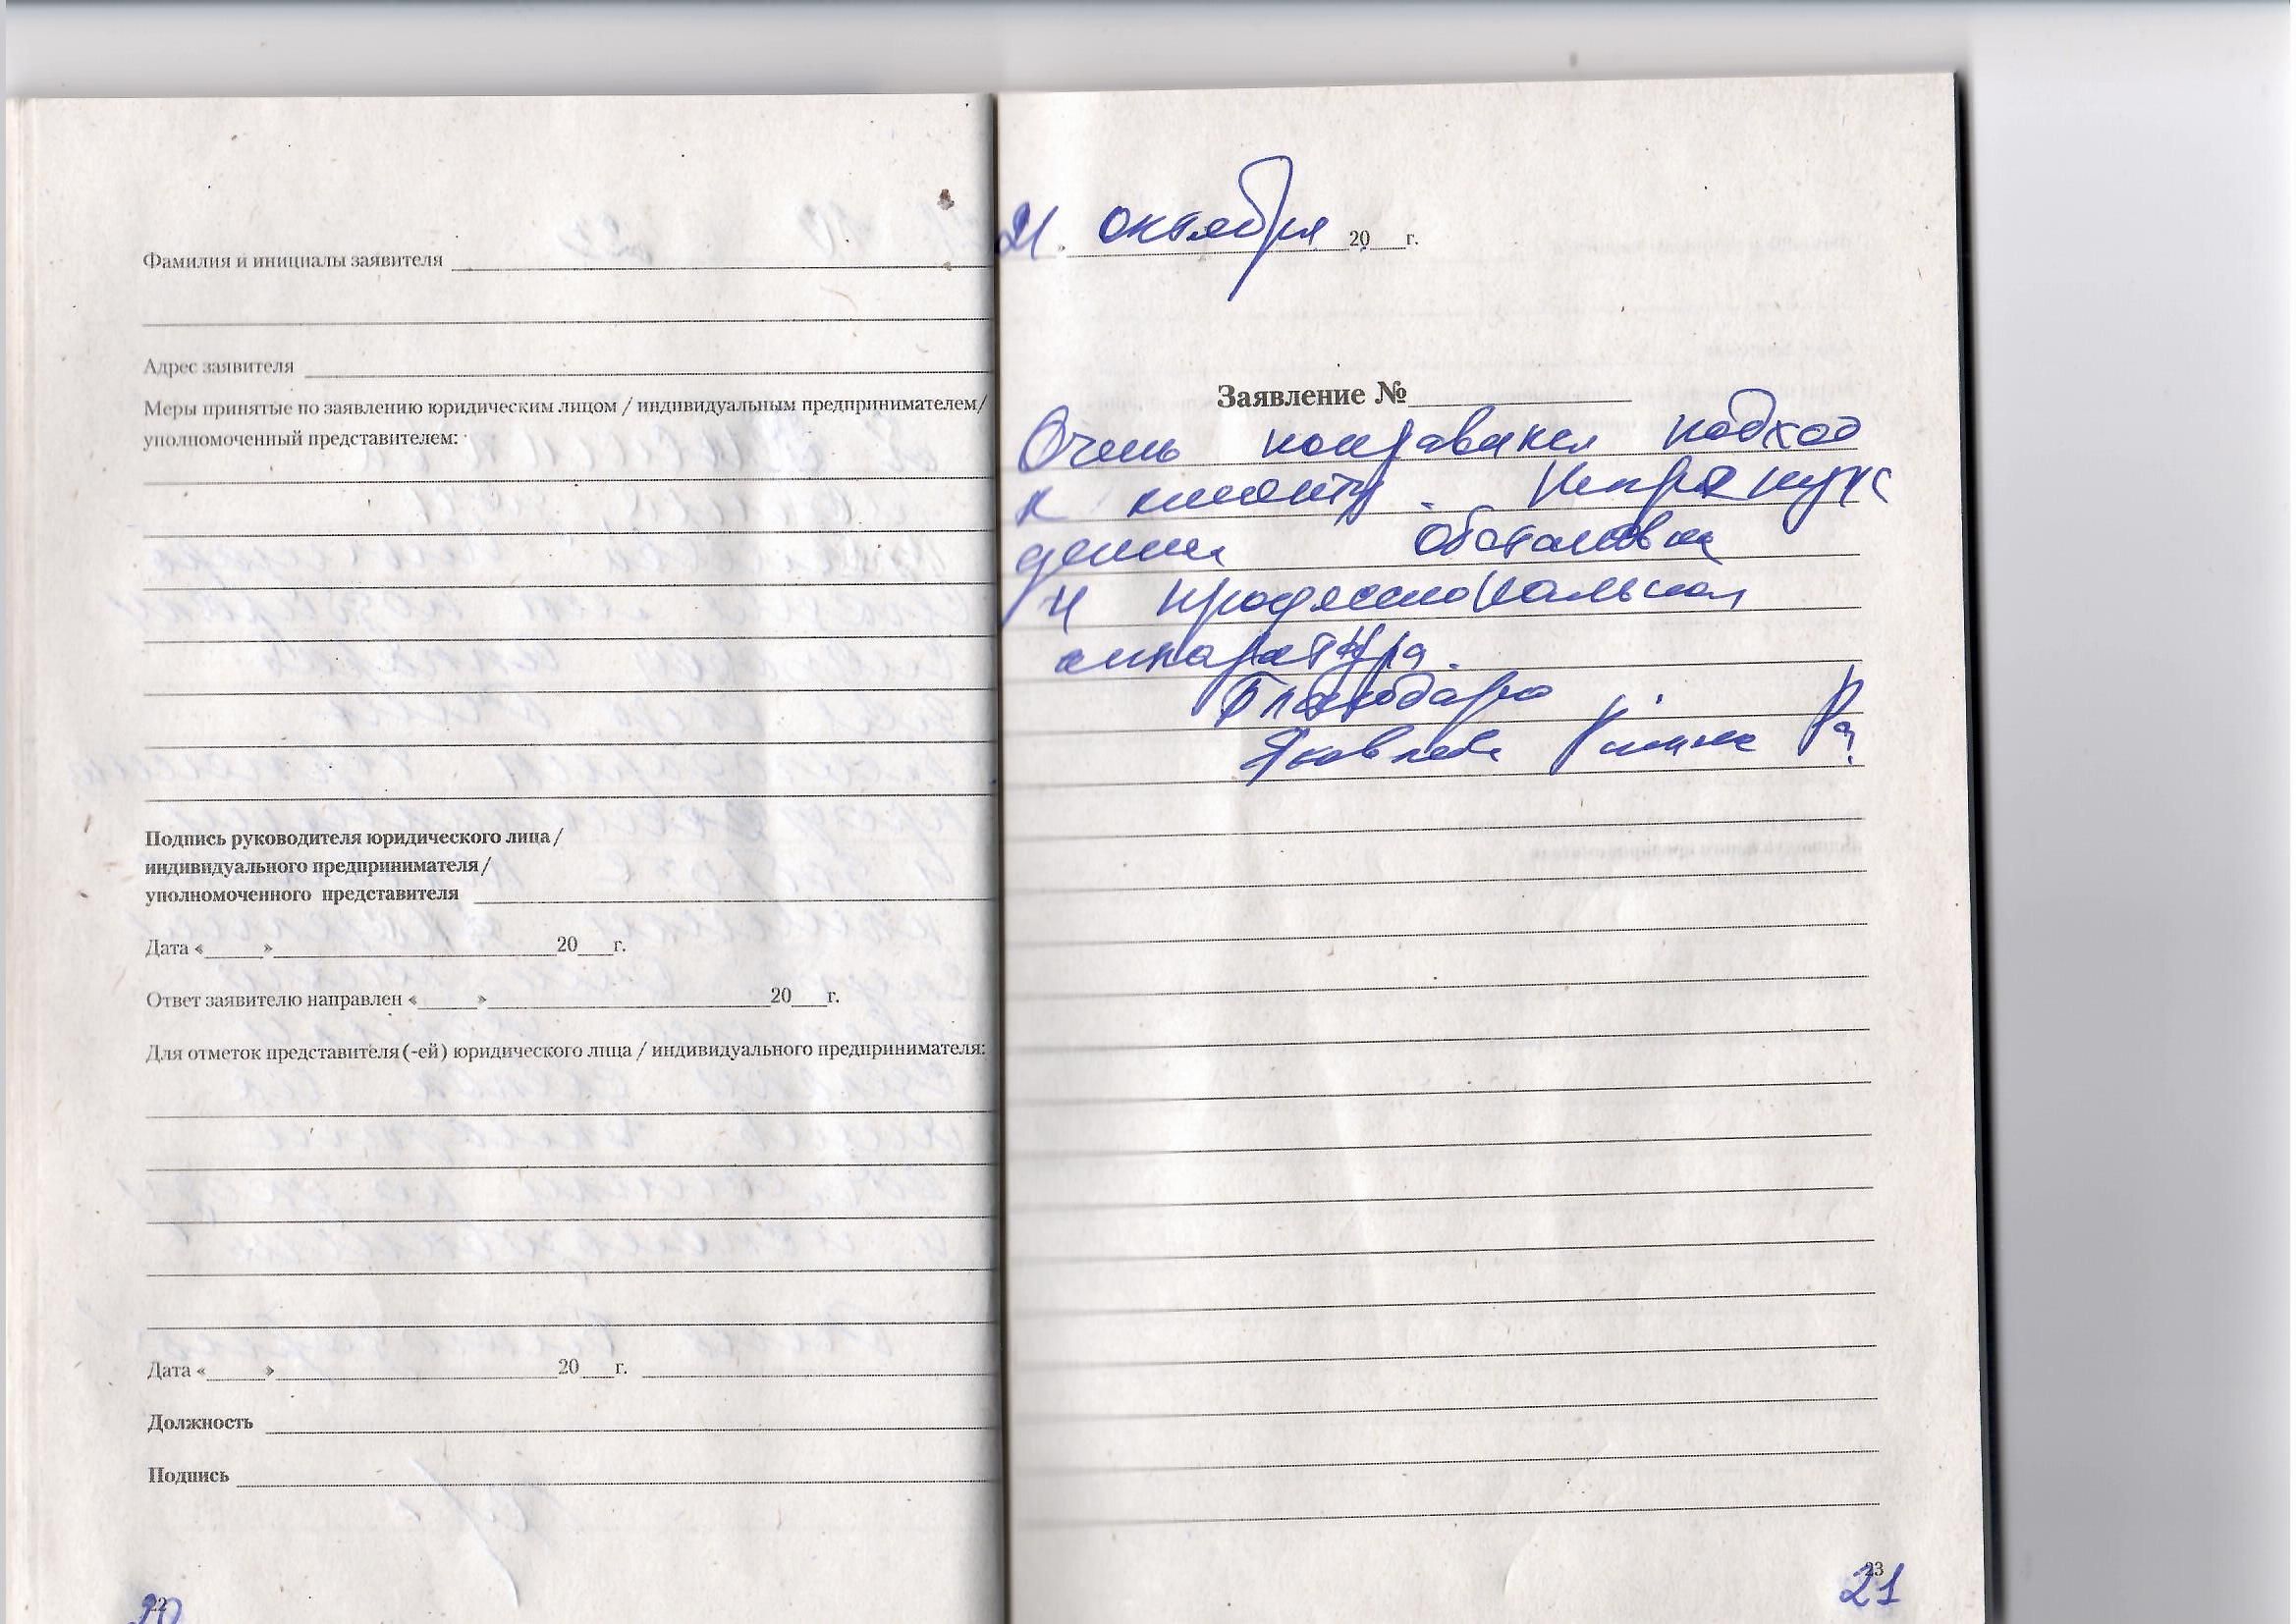 Фамилия и инициалы заявителя
Адрес заявителя
Меры принятые по заявлению юридическим лицом / индивидуальным предпринимателем/
уполномоченный представителем:
Подпись руководителя юридического лица /
индивидуального предпринимателя /
уполномоченного представителя
Дата «_____»_____20___г.
Ответ заявителю направлен «_____»_____20___г.
Для отметок представителя (-ей) юридического лица / индивидуального предпринимателя:
Дата «_____»_____20___г.
Должность
Подпись
22
20
21. октября 20___г.
Заявление №
Очень понравился подход
к клиенту.
обстановка
и профессиональная
аппаратура.
Благодарю
Яковлева
23
21